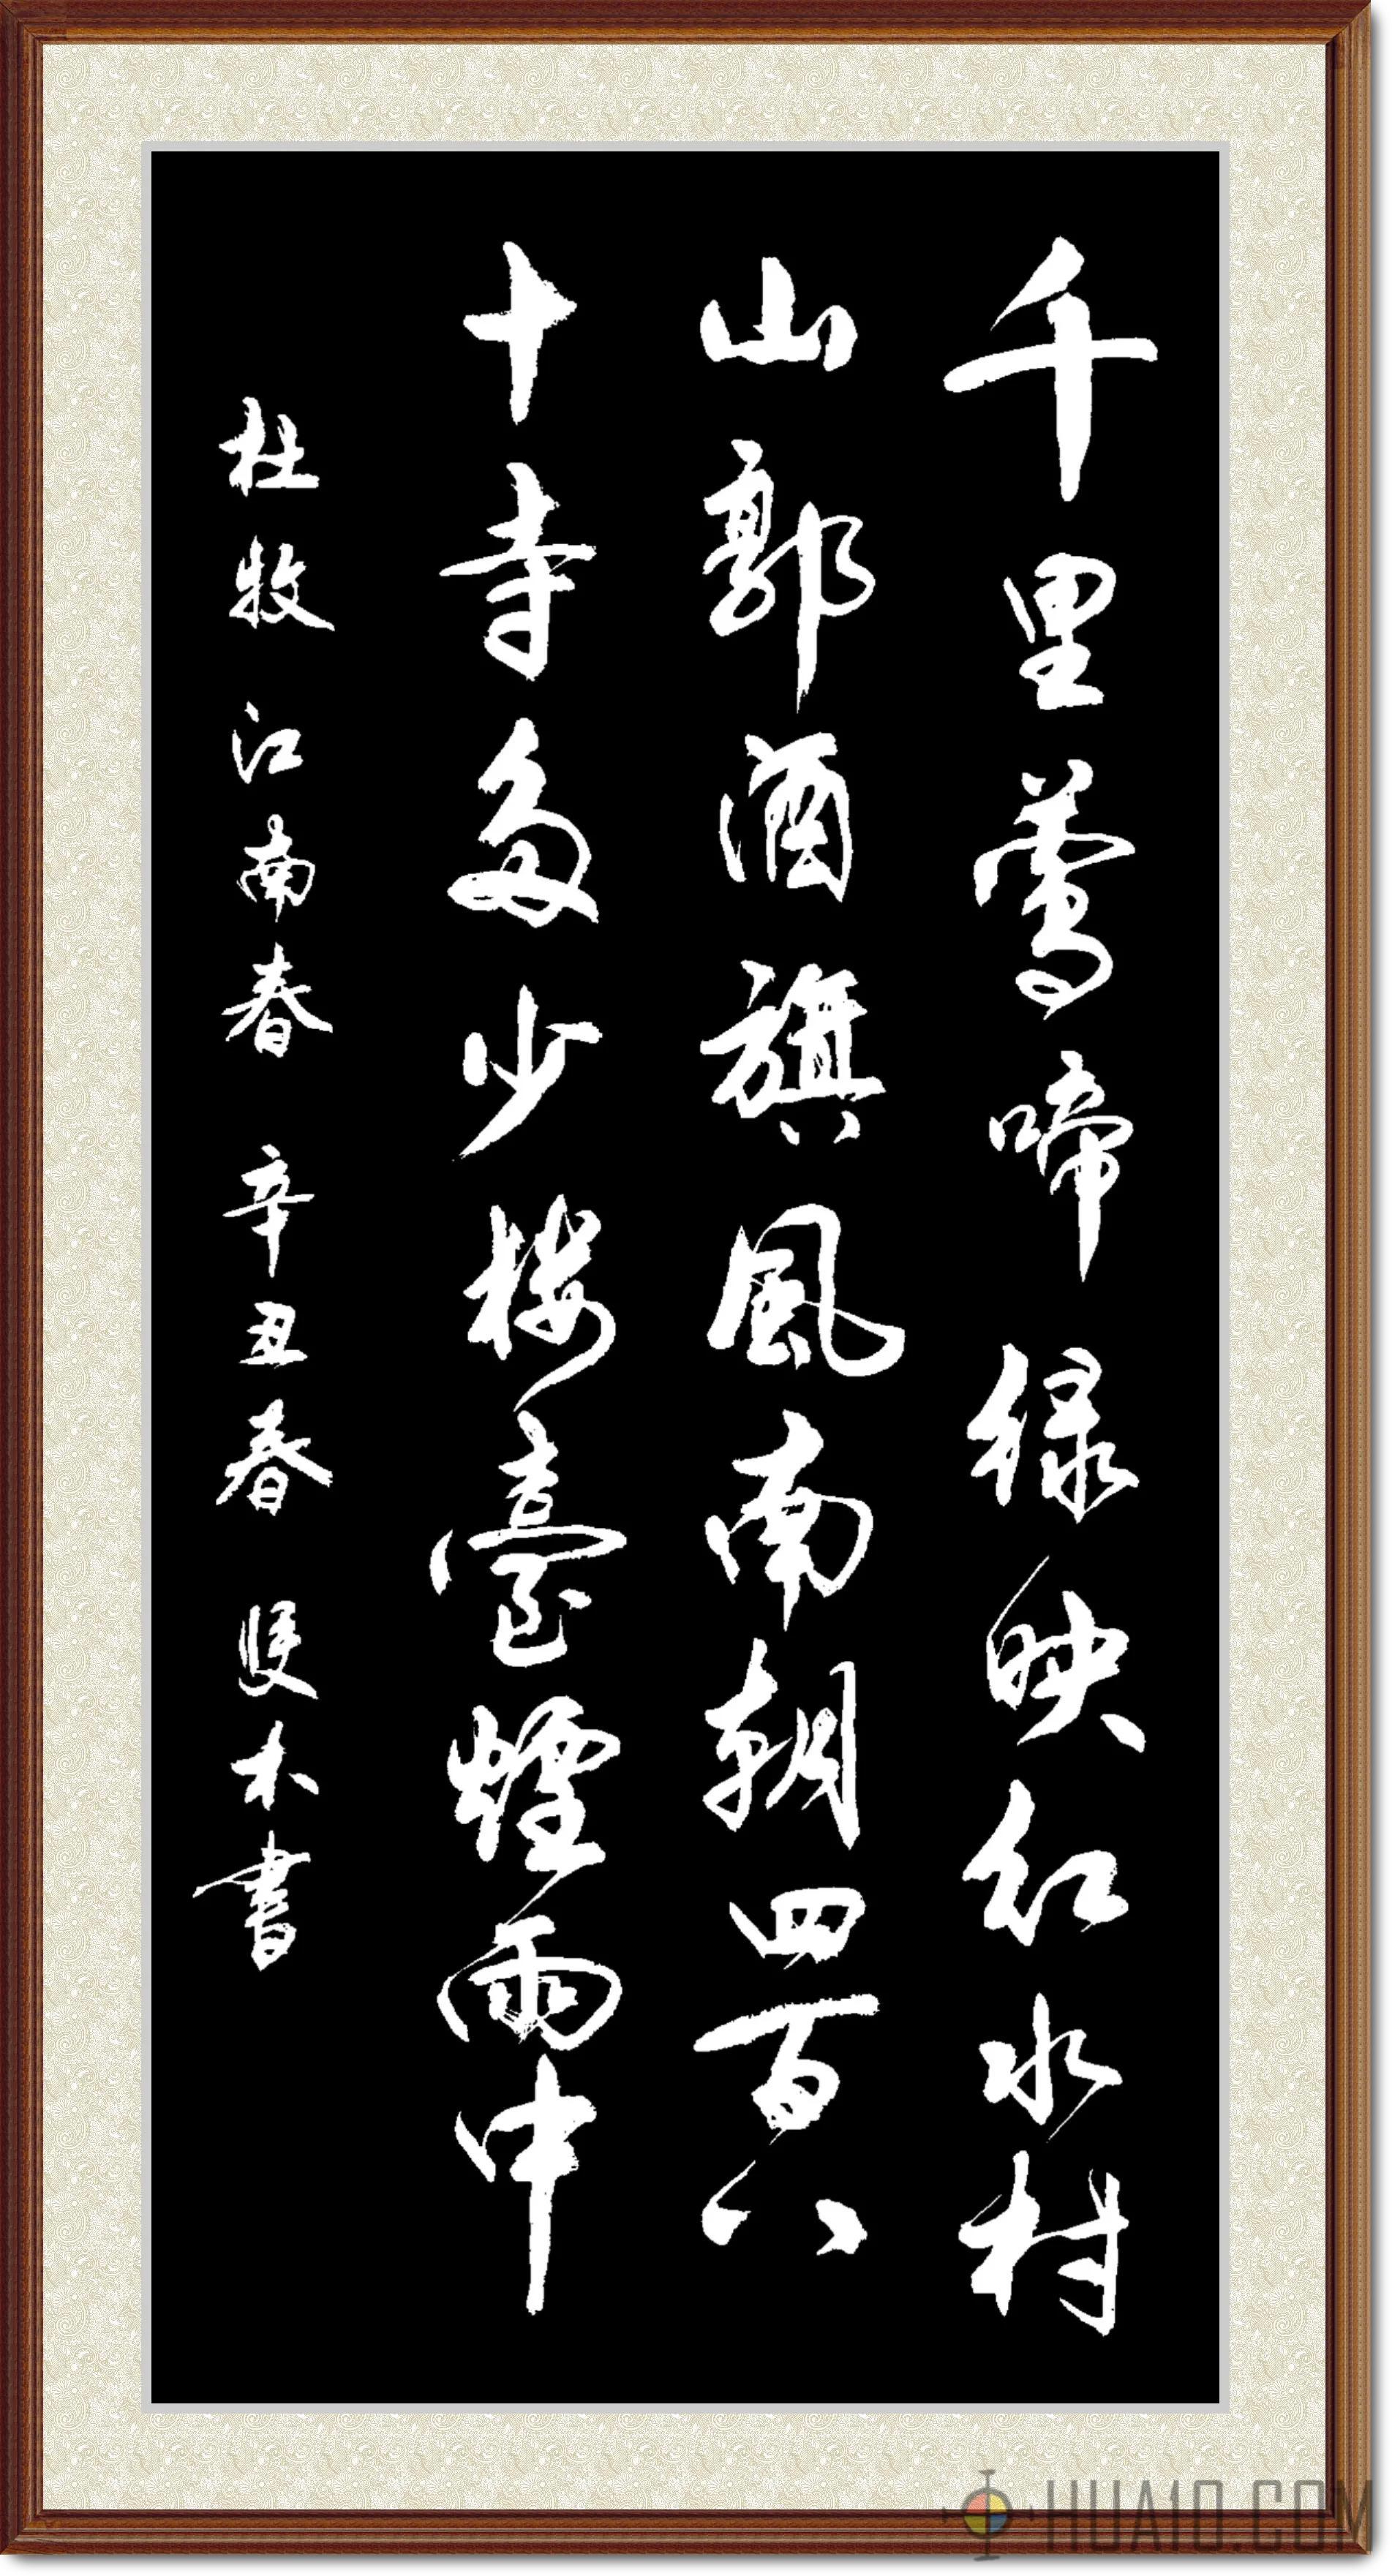 千里莺啼绿映红水村
山郭酒旗風南朝四百八
十寺多少楼臺煙雨中
杜牧江南春 辛丑春 雙木書
HUA10.COM